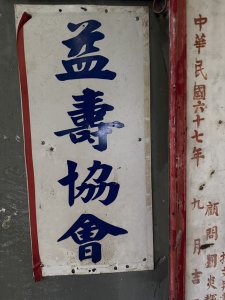 益壽協會
中華民國六十七年
九月吉
顧問劉